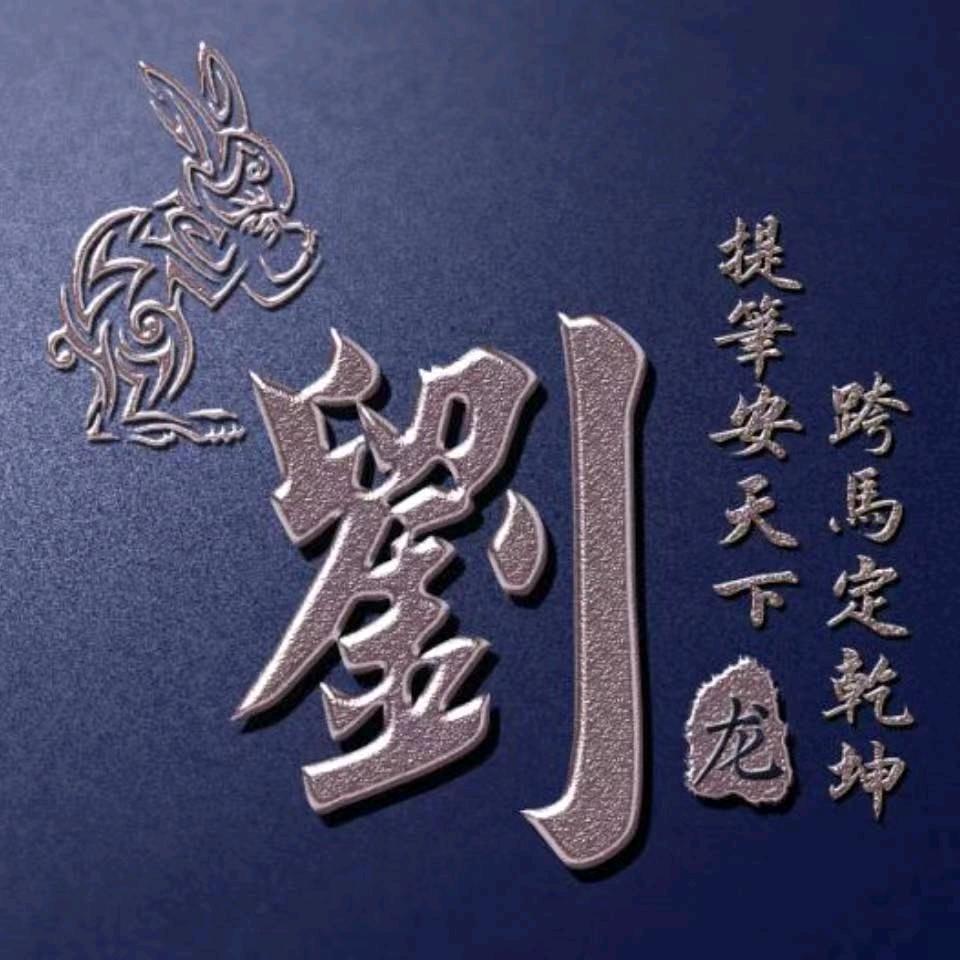 劉
跨馬定乾坤
提筆安天下
龙